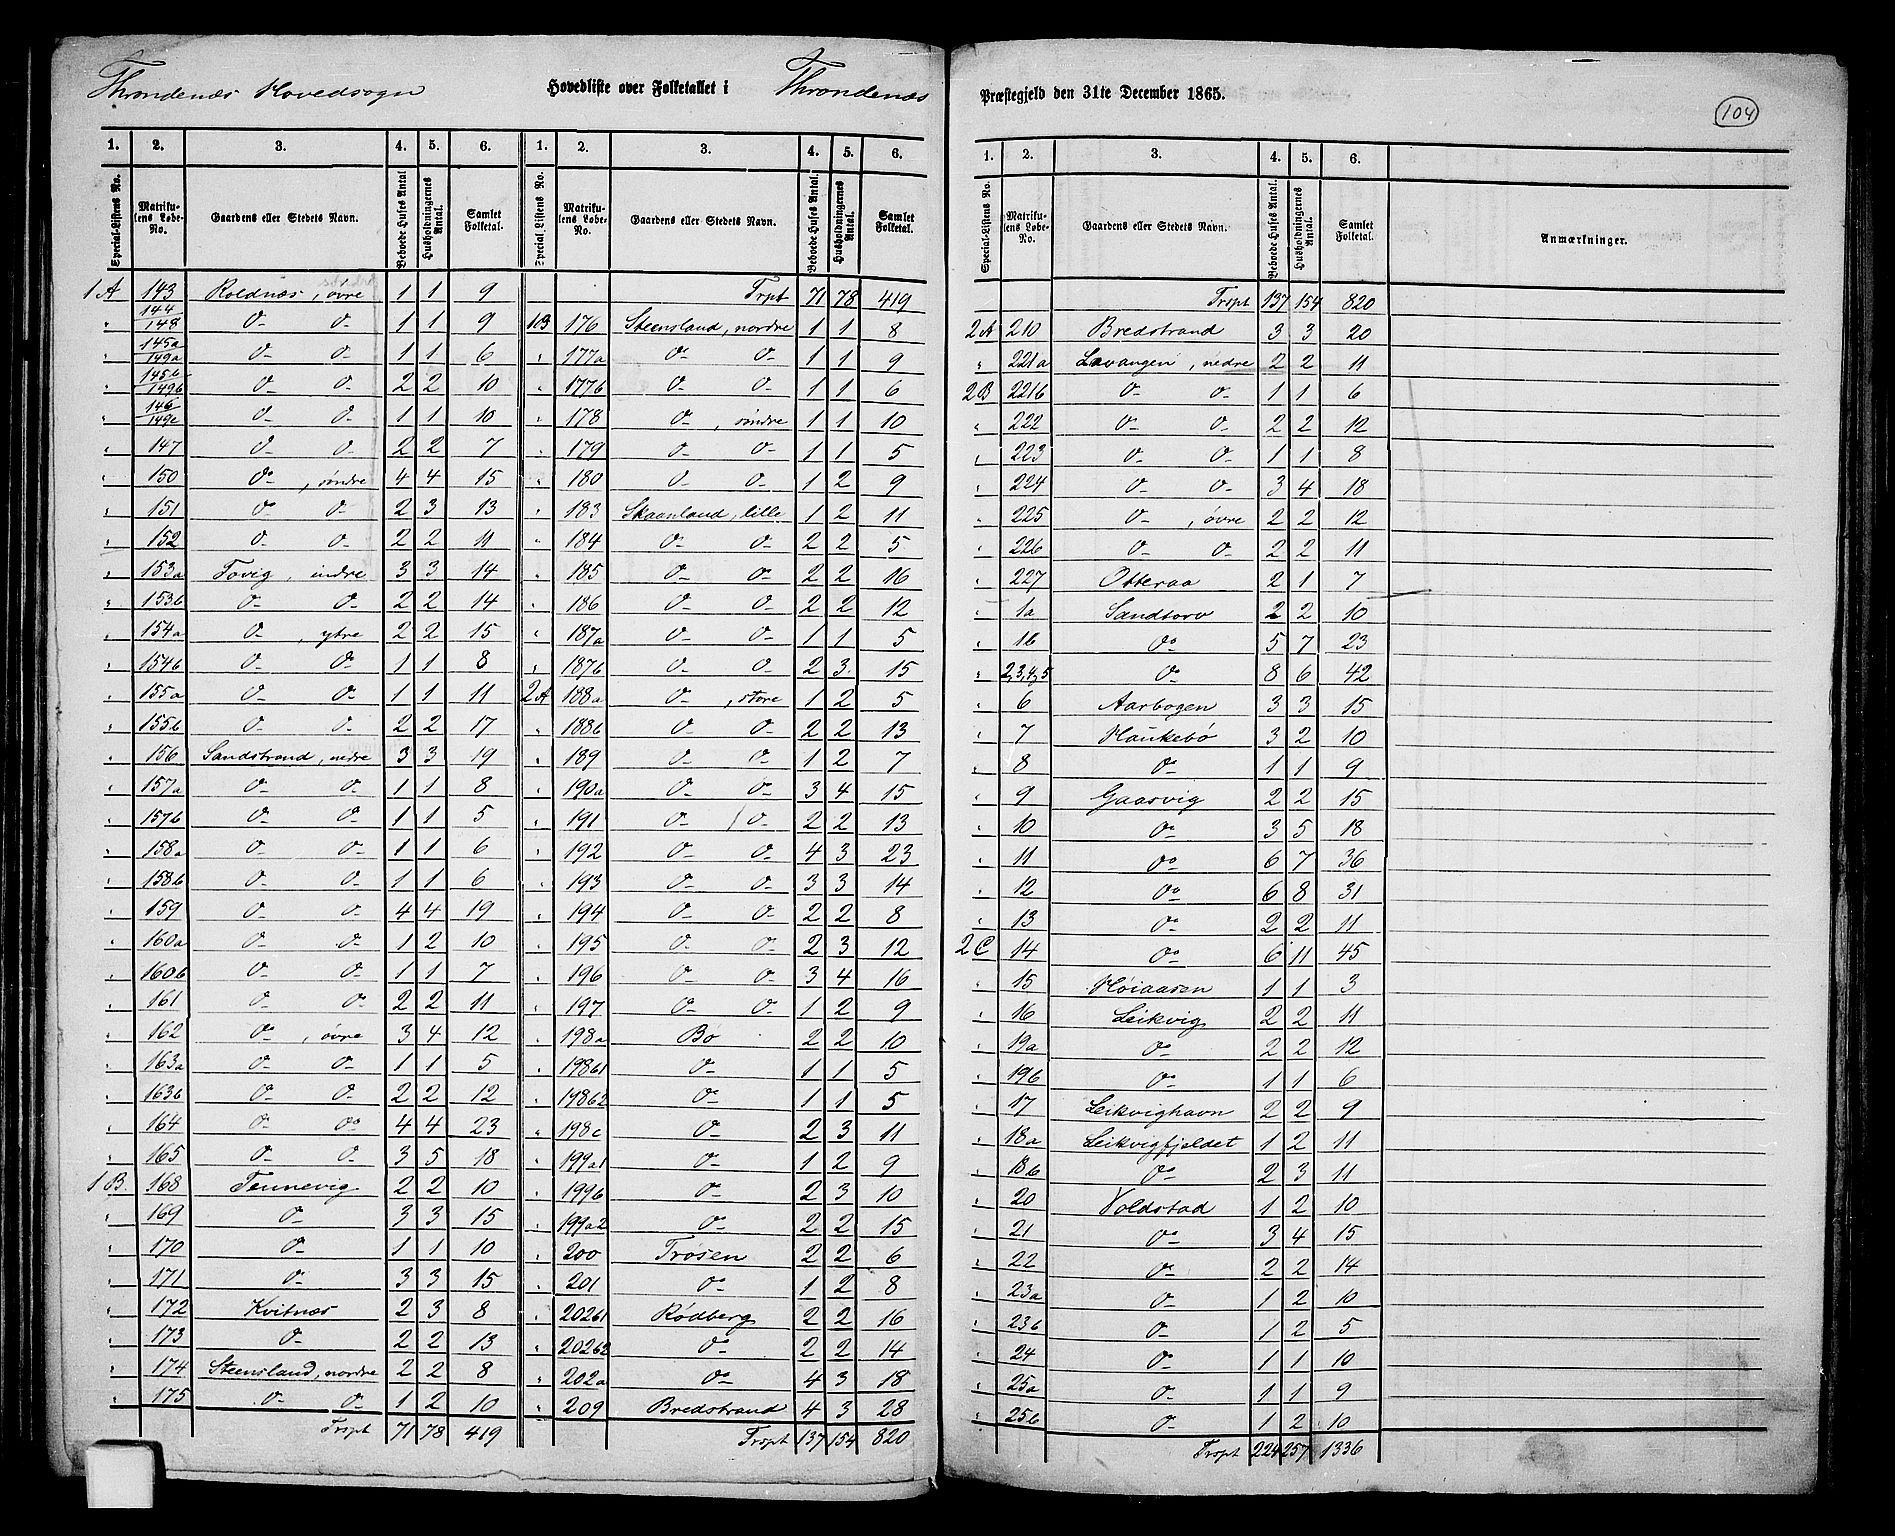 Throndenæs Hovedsogn Hovedliste over Folketallet i Throndenæs Præstegjeld den 31te December 1865.
104
1. 2. 3. 4. 5. 6.
Special-Listens No. Matrikulens Løbe-No. Gaardens eller Stedets Navn. Beboede Huses Antal Husholdningernes Antal. Samlet Folketal.
1A 143 Roldnæs, øvre 1 1 9
" 144/148 D- D- 1 1 9
" 145a/149a D- D- 1 1 6
" 145b/149b D- D- 2 2 10
" 146/149c D- D- 1 1 10
" 147 D- D- 2 2 7
" 150 Do, søndre 4 4 15
" 151 D- D- 2 3 13
" 152 D- D- 2 2 11
" 153a Tovig, indre 3 3 14
" 153b D- D- 2 2 14
" 154a D-, ytre 2 2 15
" 154b D- Do 1 1 8
" 155a D- Do 1 1 11
" 155b D- D- 2 2 17
" 156 Sandstrand, nedre 3 3 19
" 157a D- D- 1 1 8
" 157b D- D- 1 1 5
" 158a D- D- 1 1 6
" 158b D- D- 1 1 6
" 159 D- D- 4 4 19
" 160a D- D- 1 2 10
" 160b D- D- 1 1 7
" 161 D- Do 2 2 11
" 162 D-, øvre 3 4 12
" 163a D- D- 1 1 5
" 163b D- D- 2 2 12
" 164 D- Do 4 4 23
" 165 D- D- 3 5 18
1B. 168 Tennevig 2 2 10
" 169 D- 3 3 15
" 170 D- 1 1 10
" 171 D- 3 3 15
" 172 Kvitnæs 2 3 8
" 173 D- 2 2 13
" 174 Steensland, nordre 2 2 8
" 175 D- D- 1 2 10
Trspt 71 78 419
1. 2. 3. 4. 5. 6.
Special-Listens No. Matrikulens Løbe-No. Gaardens eller Stedets Navn. Beboede Huses Antal. Husholdningernes Antal. Samlet Folketal.
Trpt 71 78 419
1B 176 Steensland, nordre 1 1 8
" 177a Do D- 1 1 9
" 177b D- D- 1 1 6
" 178 D-, søndre 1 1 10
" 179 D- D- 1 1 5
" 180 D- D- 1 2 9
" 183 Skaanland, lille 1 2 11
" 184 D- D- 2 2 5
" 185 D- D- 2 2 16
" 186 D- D- 2 2 12
" 187a D- D- 1 1 5
" 187b D- D- 2 3 15
2A 188a D-, store 1 2 5
" 188b D- D- 2 2 13
" 189 D- D- 1 2 7
" 190a D- D- 3 4 15
" 191 D- D- 2 2 13
" 192 D- D- 4 3 23
" 193 D- D- 3 3 14
" 194 D- D- 2 2 8
" 195 D- D- 2 3 12
" 196 D- D- 3 4 16
" 197 D- D- 1 2 9
" 198a Bø 2 2 10
" 198b1 D- 1 1 5
" 198b2 D- 1 1 5
" 198c D- 2 3 11
" 199a1 D- 1 2 9
" 199b D- 2 3 10
" 199a2 D- 2 2 15
" 200 Trøsen 2 2 6
" 201 D- 1 2 8
" 202b1 Rødberg 2 2 16
" 202b2 Do 2 2 14
" 202a Do 4 3 18
" 209 Bredstrand 4 3 28
Trspt 137 154 820
1. 2. 3. 4. 5. 6.
Special-Listens No. Matrikulens Løbe-No. Gaardens eller Stedets Navn. Beboede Huses Antal. Husholdningernes Antal. Samlet Folketal. Anmærkninger.
Trspt 137 154 820
2A 210 Bredstrand 3 3 20
" 221a Lavangen, nedre 2 2 11
2B 221b D- D- 1 1 6
" 222 D- D- 2 2 12
" 223 D- D- 1 1 8
" 224 D- D- 3 4 18
" 225 D-, øvre 2 2 12
" 226 D- D- 2 2 11
" 227 Otteraa 2 1 7
" 1a Sandtorv 2 2 10
" 1b Do 5 7 23
" 2,3,4,5 Do 8 6 42
" 6 Aarbogen 3 3 15
" 7 Haukebø 3 2 10
" 8 Do 1 1 9
" 9 Gaarvig 2 2 15
" 10 Do 3 5 18
" 11 Do 6 7 36
" 12 Do 6 8 31
" 13 Do 2 2 11
2C 14 Do 6 11 45
" 15 Høiaasen 1 1 3
" 16 Leikvig 2 2 11
" 19a Do 2 2 12
" 19b Do 1 1 6
" 17 Leikvighavn 2 2 9
" 18a Leikvigfjeldet 1 2 11
" 18b Do 2 3 11
" 20 Voldstad 1 2 10
" 21 Do 3 4 15
" 22 D- 2 2 14
" 23a D- 1 2 10
" 23b D- 1 2 5
" 24 D- 1 1 10
" 25a D- 1 1 9
" 25b D- 1 2 10
Trspt 224 257 1336